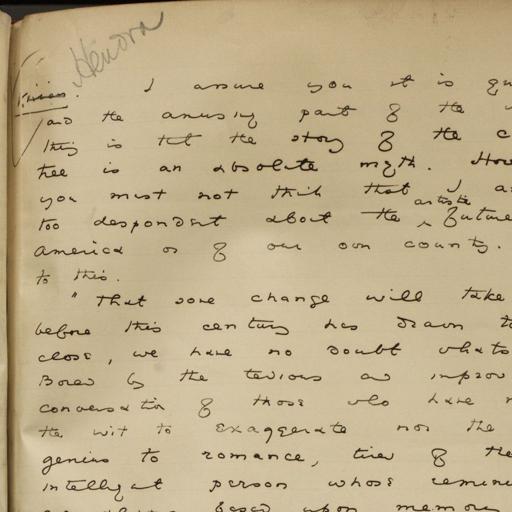 I assure you it is
and the amusing part of the
thing is that the story of the
tree is an absolute myth.
you must not think that I
artistic
too despondent about the future
America or of our own country.
to this.
"That some change will take
before this century has drawn
close, we have no doubt
Bored by the tedious and
conversation of those who have
the wit to exaggerate nor the
genius to romance, tired of the
intelligent person whose
based upon memory